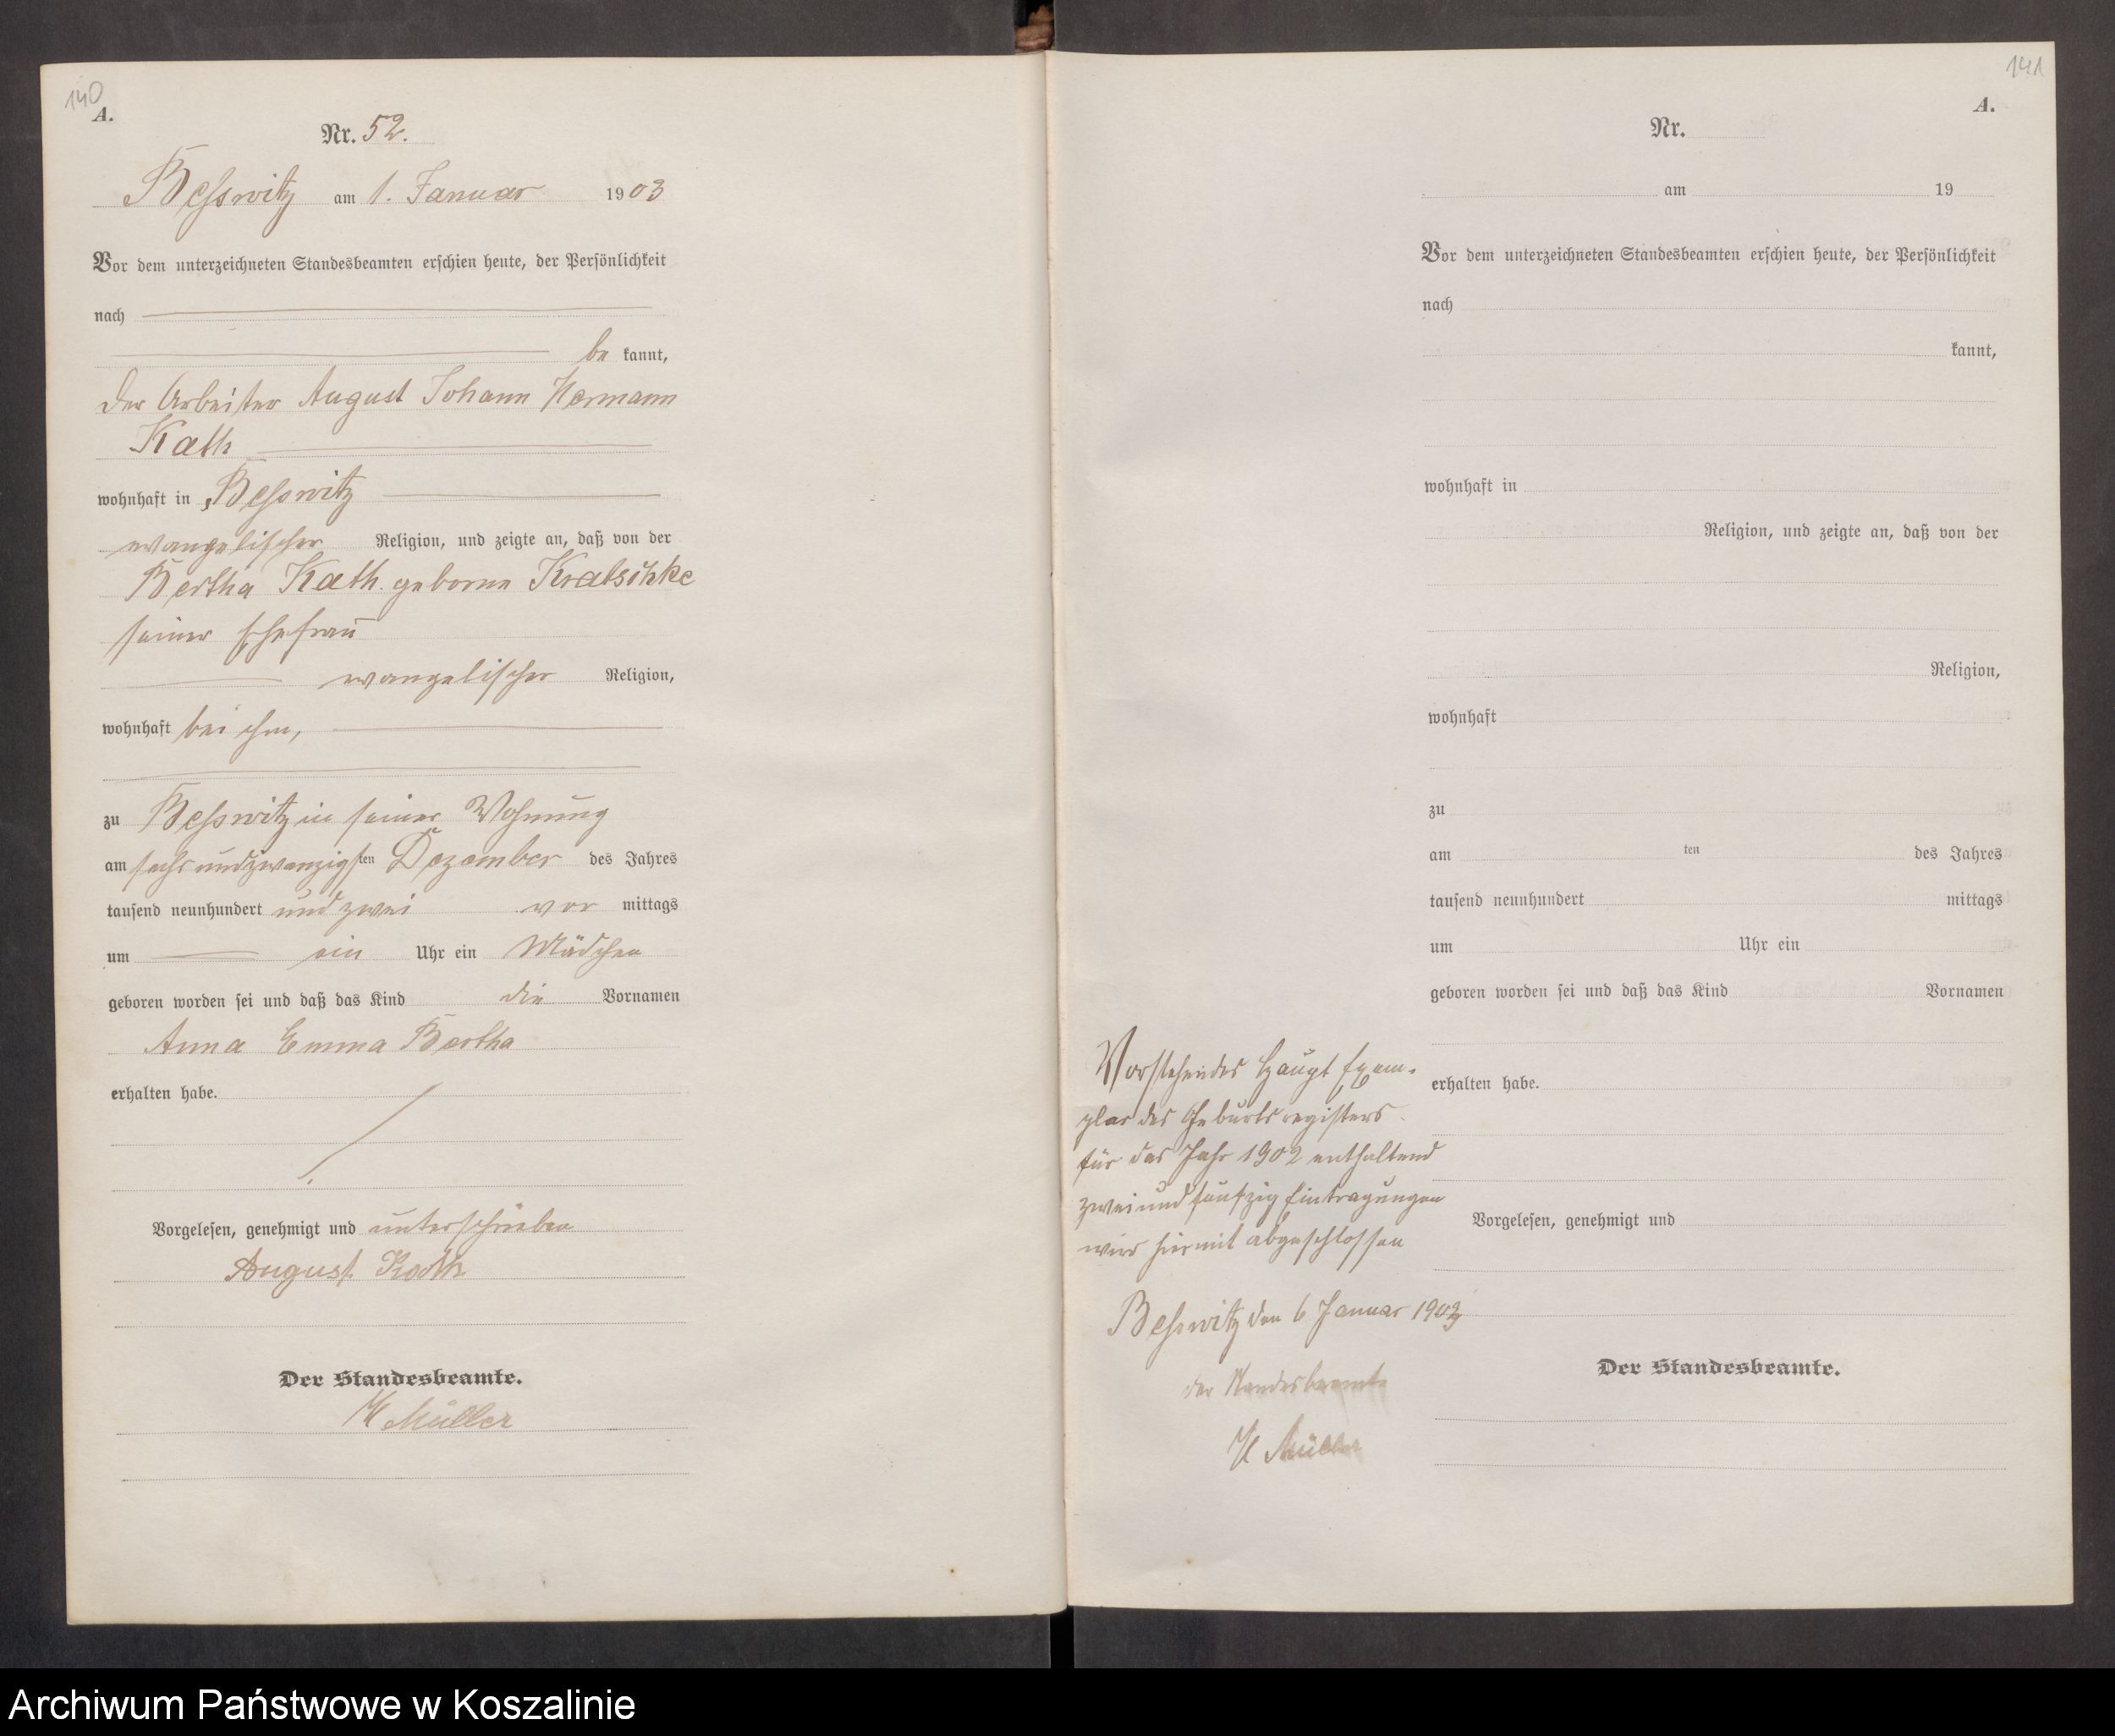 140
A.
Nr. 52.
Beßwitz am 1. Januar 1903
Vor dem unterzeichneten Standesbeamten erschien heute, der Persönlichkeit
nach
be kannt,
der Arbeiter August Johann Hermann
Kath
wohnhaft in Beßwitz
evangelischer Religion, und zeigte an, daß von der
Bertha Kath geborne Kratschke
seiner Ehefrau
evangelischer Religion,
wohnhaft bei ihm,
zu Beßwitz in seiner Wohnung
am sechsundzwanzigsten Dezember des Jahres
tausend neunhundert und zwei vor mittags
um ein Uhr ein Mädchen
geboren worden sei und daß das Kind die Vornamen
Anna Emma Bertha
erhalten habe.
Vorgelesen, genehmigt und unterschrieben
August Kath
Der Standesbeamte.
Müller
141
A.
Nr.
am 19
Vor dem unterzeichneten Standesbeamten erschien heute, der Persönlichkeit
nach
kannt,
wohnhaft in
Religion, und zeigte an, daß von der
Religion,
wohnhaft
zu
am ten des Jahres
tausend neunhundert mittags
um Uhr ein
geboren worden sei und daß das Kind Vornamen
erhalten habe.
Vorgelesen, genehmigt und
Der Standesbeamte.
Vorstehendes Haupt Exem-
plar des Geburtsregisters
für das Jahr 1902 enthaltend
zweiundfünfzig Eintragungen
wird hiermit abgeschlossen
Beßwitz den 6 Januar 1903
der Standesbeamte
Müller
Archiwum Państwowe w Koszalinie